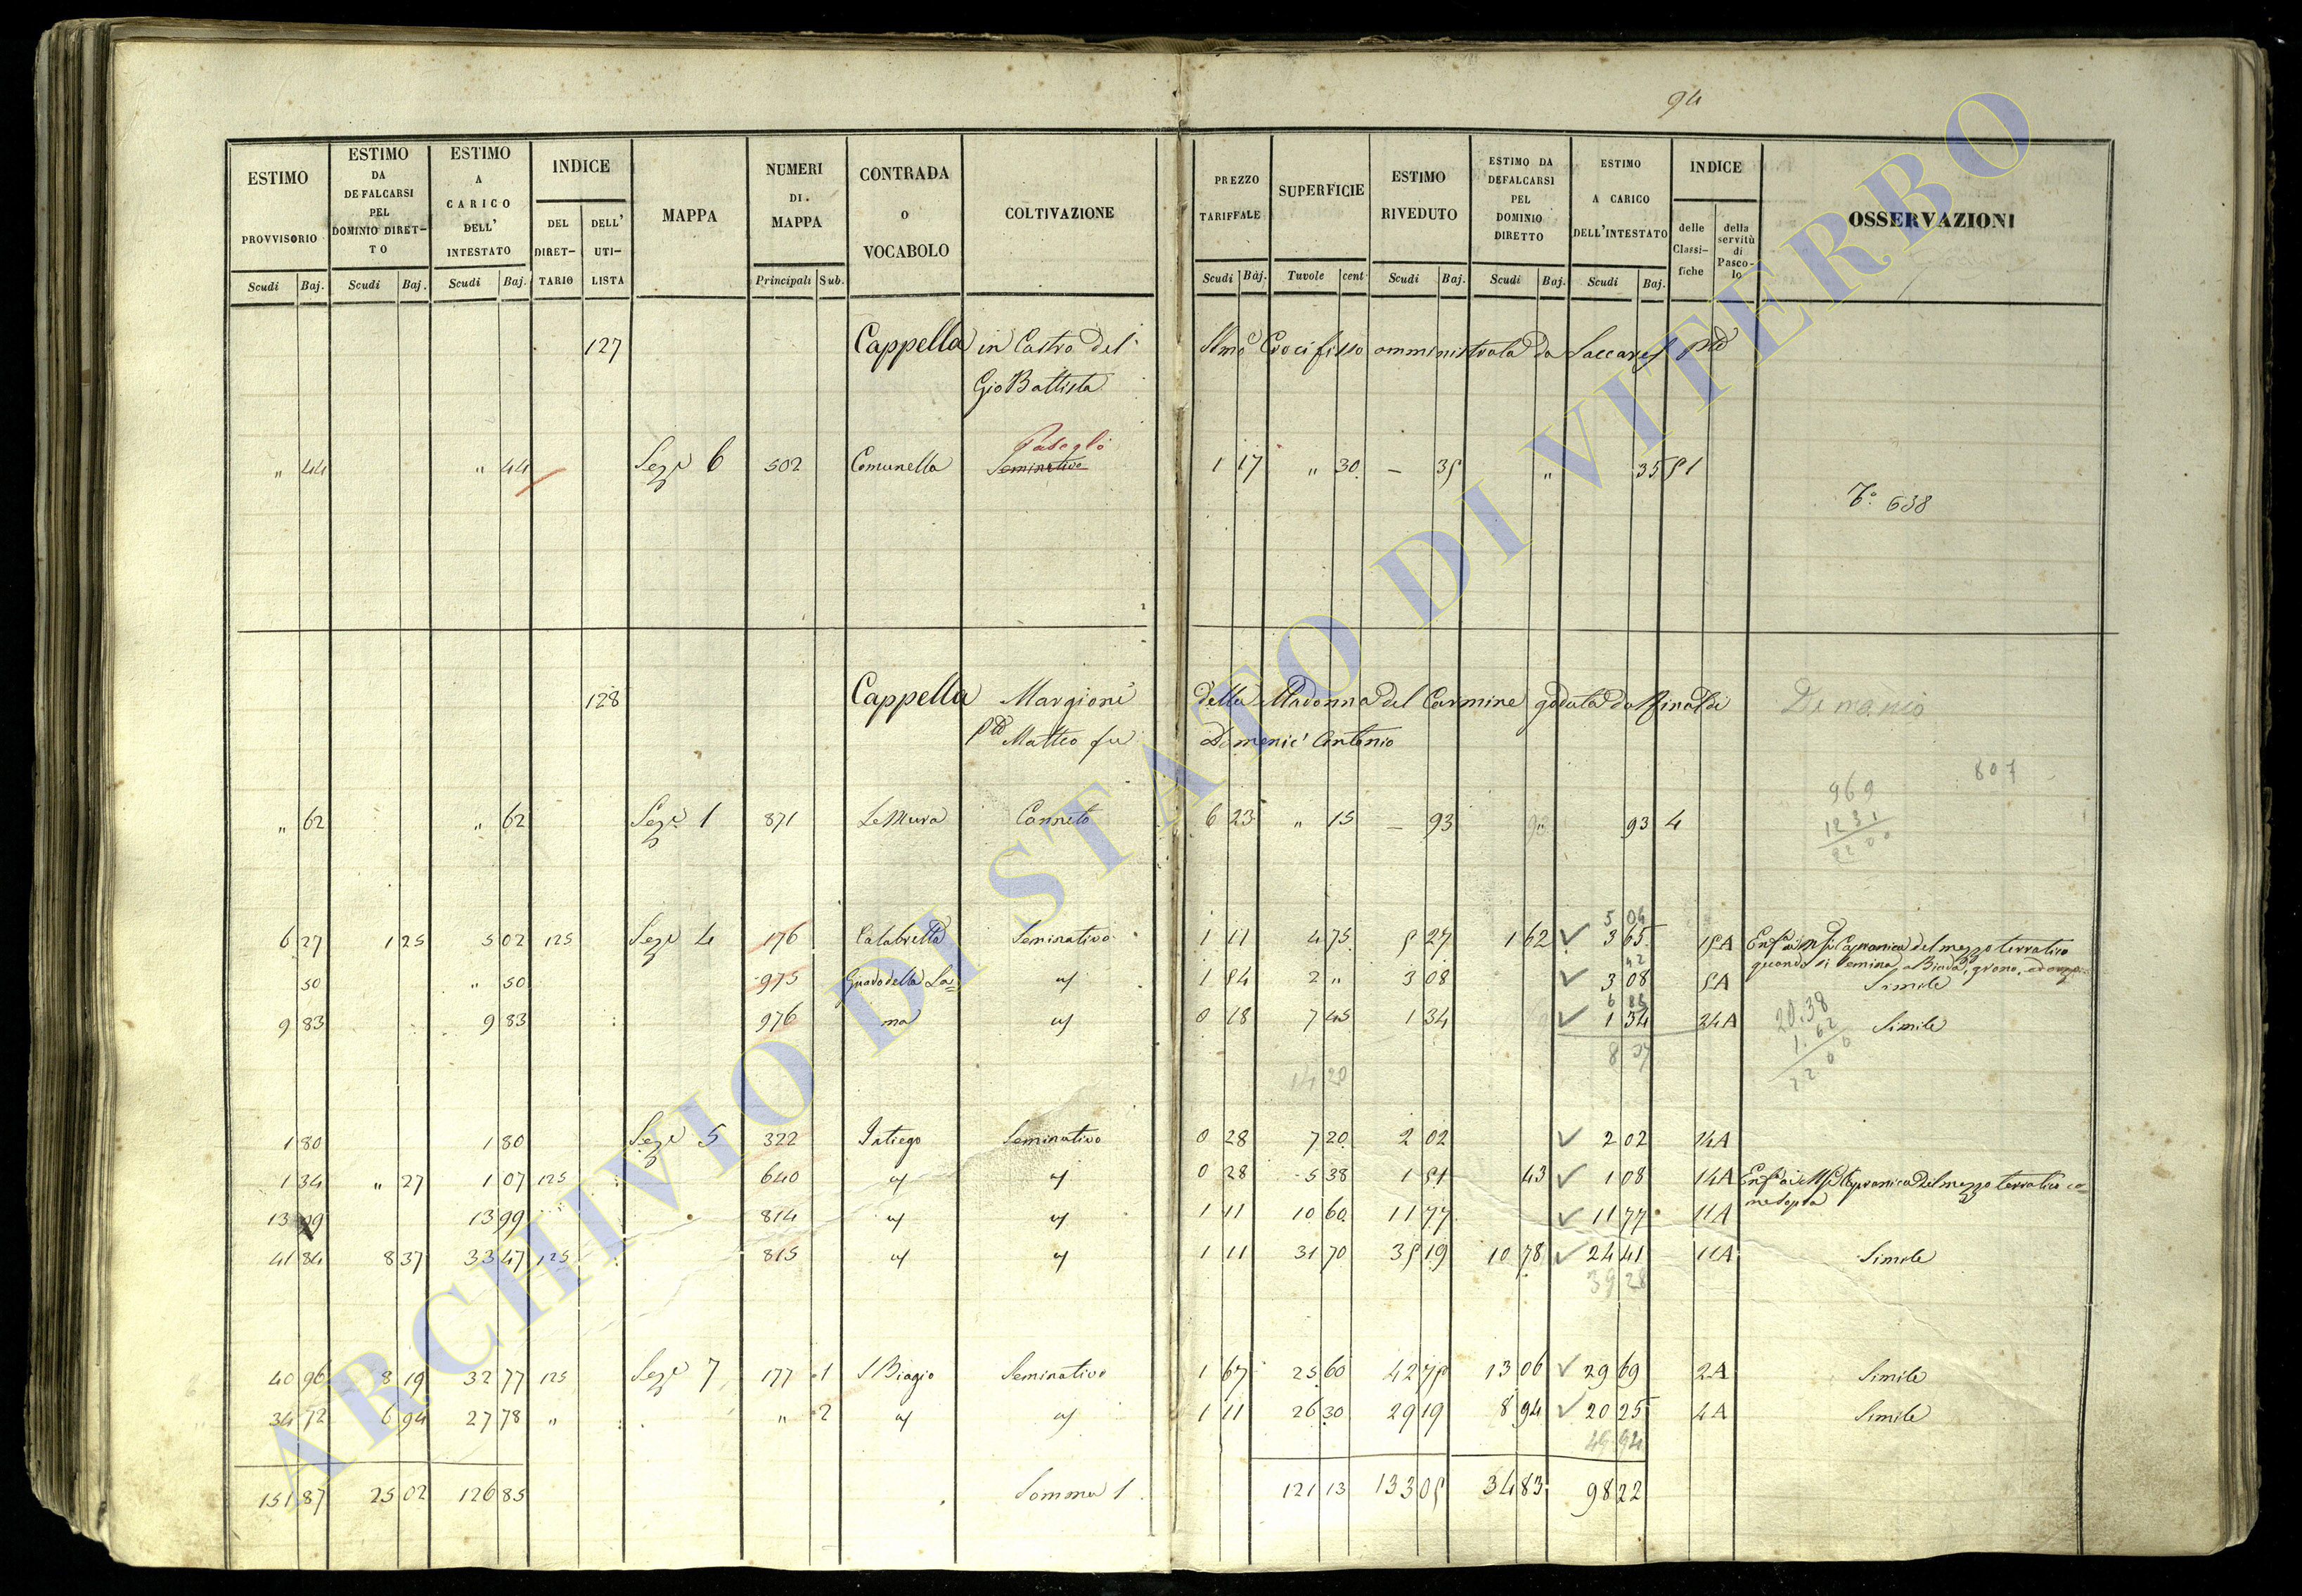 94
ESTIMO PROVVISORIO Scudi Baj.
ESTIMO DA DEFALCARSI PEL DOMINIO DIRETTO Scudi Baj.
ESTIMO A CARICO DELL' INTESTATO Scudi Baj.
INDICE DEL DIRETTARIO DELL' UTILISTA
MAPPA
NUMERI DI MAPPA Principali Sub.
CONTRADA O VOCABOLO
COLTIVAZIONE
PREZZO TARIFFALE Scudi Baj.
SUPERFICIE Tavole cent
ESTIMO RIVEDUTO Scudi Baj.
ESTIMO DA DEFALCARSI PEL DOMINIO DIRETTO Scudi Baj.
ESTIMO A CARICO DELL'INTESTATO Scudi Baj.
INDICE delle Classifiche della servitù di Pascolo
OSSERVAZIONI
127 Cappella in Castro del Smo Crocifisso amministrata da
Gio Battista
Pascolo
" 44 " 44 Seze 6 502 Comunella Seminativo 1 17 " 30 — 35 " 35 51
To 638
128 Cappella Margioni della Madonna del Carmine goduta da Rinaldi Demanio
Matteo fu Domenic' Antonio
807
969
1231
2200
" 62 " 62 Seze 1 871 Le Mura Canneto 6 23 " 15 — 93 " 93 4
5 04
6 27 1 25 5 02 125 Seze 4 176 Calabretta Seminativo 1 11 4 75 5 27 1 62 3 65 15A del mezzo terratico
quando si semina a Biada, grano,
50 " 50 975 Guado della La= 1 54 2 " 3 08 3 08 5A Simile
9 83 9 83 976 ma 0 18 7 45 1 34 1 34 24A Simile
20.38
1.62
22 00
8 07
14 20
1 80 1 80 Seze 5 322 Seminativo 0 28 7 20 2 02 2 02 14A
1 34 " 27 1 07 125 640 0 28 5 38 1 51 43 1 08 14A del mezzo terratico co=
me sopra
13 99 13 99 814 1 11 10 60 11 77 11 77 11A
41 84 8 37 33 47 125 815 1 11 31 70 35 19 10 78 24 41 11A Simile
39 28
40 96 8 19 32 77 125 Seze 7 177 1 S Biagio Seminativo 1 67 25 60 42 75 13 06 29 69 2A Simile
34 72 6 94 27 78 " " 2 1 11 26 30 29 19 8 94 20 25 4A Simile
49 94
151 87 25 02 126 85 Somma 1 121 13 133 05 34 83 98 22
ARCHIVIO DI STATO DI VITERBO